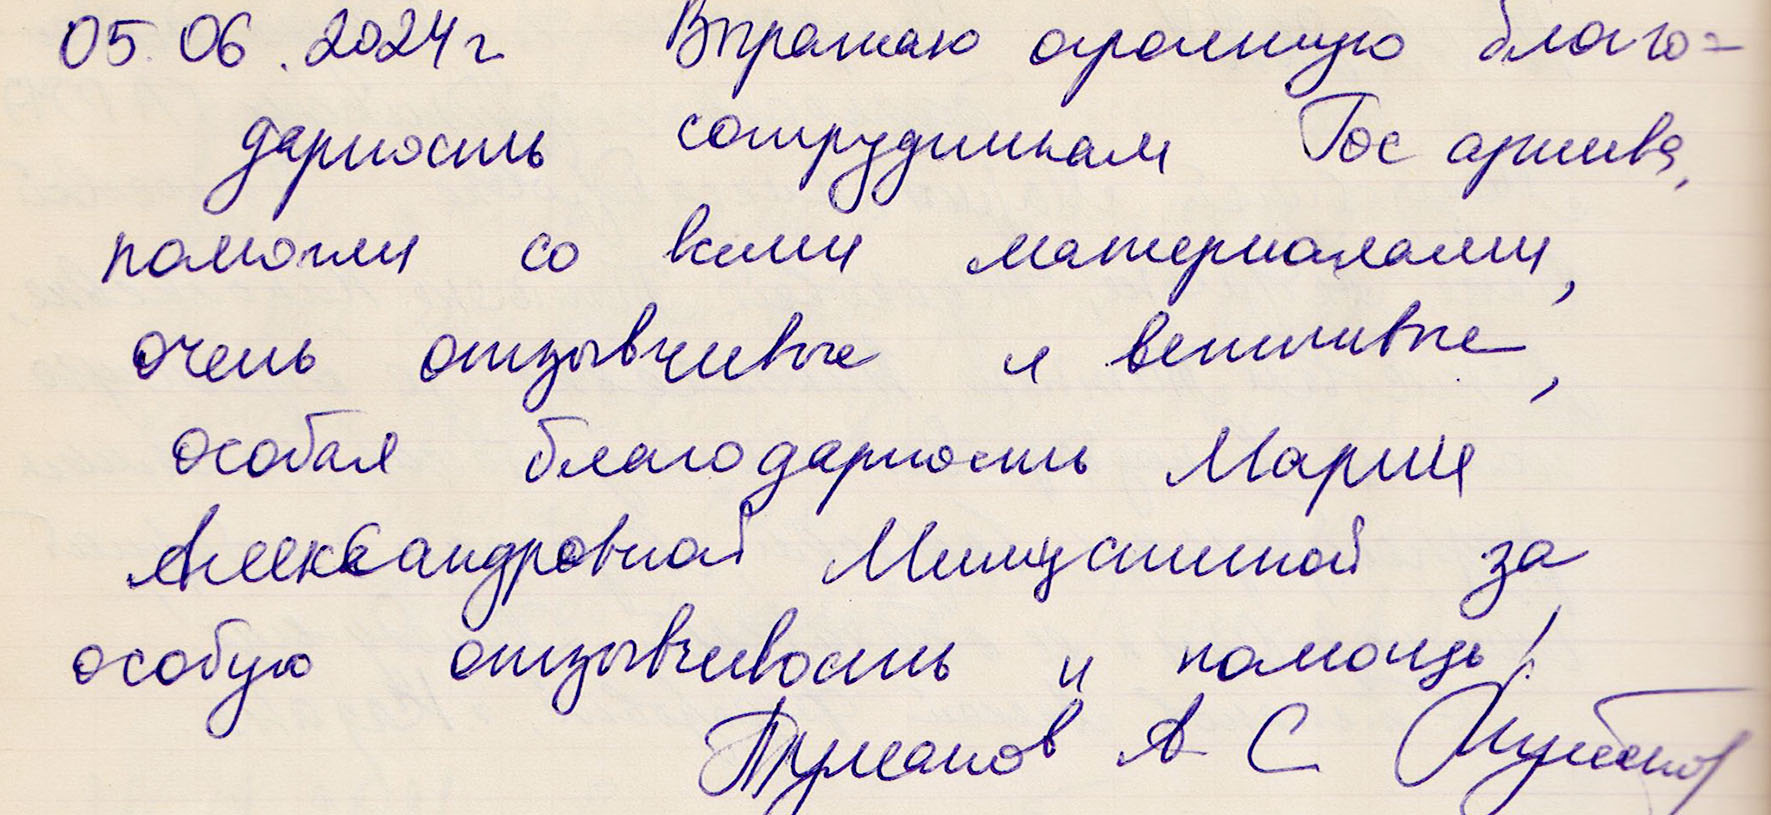 05.06.2024г Выражаю огромную благо-
дарность сотрудникам Гос архива,
помогли со всеми материалами,
очень отзывчивые и вежливые,
особая благодарность Марие
Александровной за
особую отзывчивость и помощь!
Туманов А С